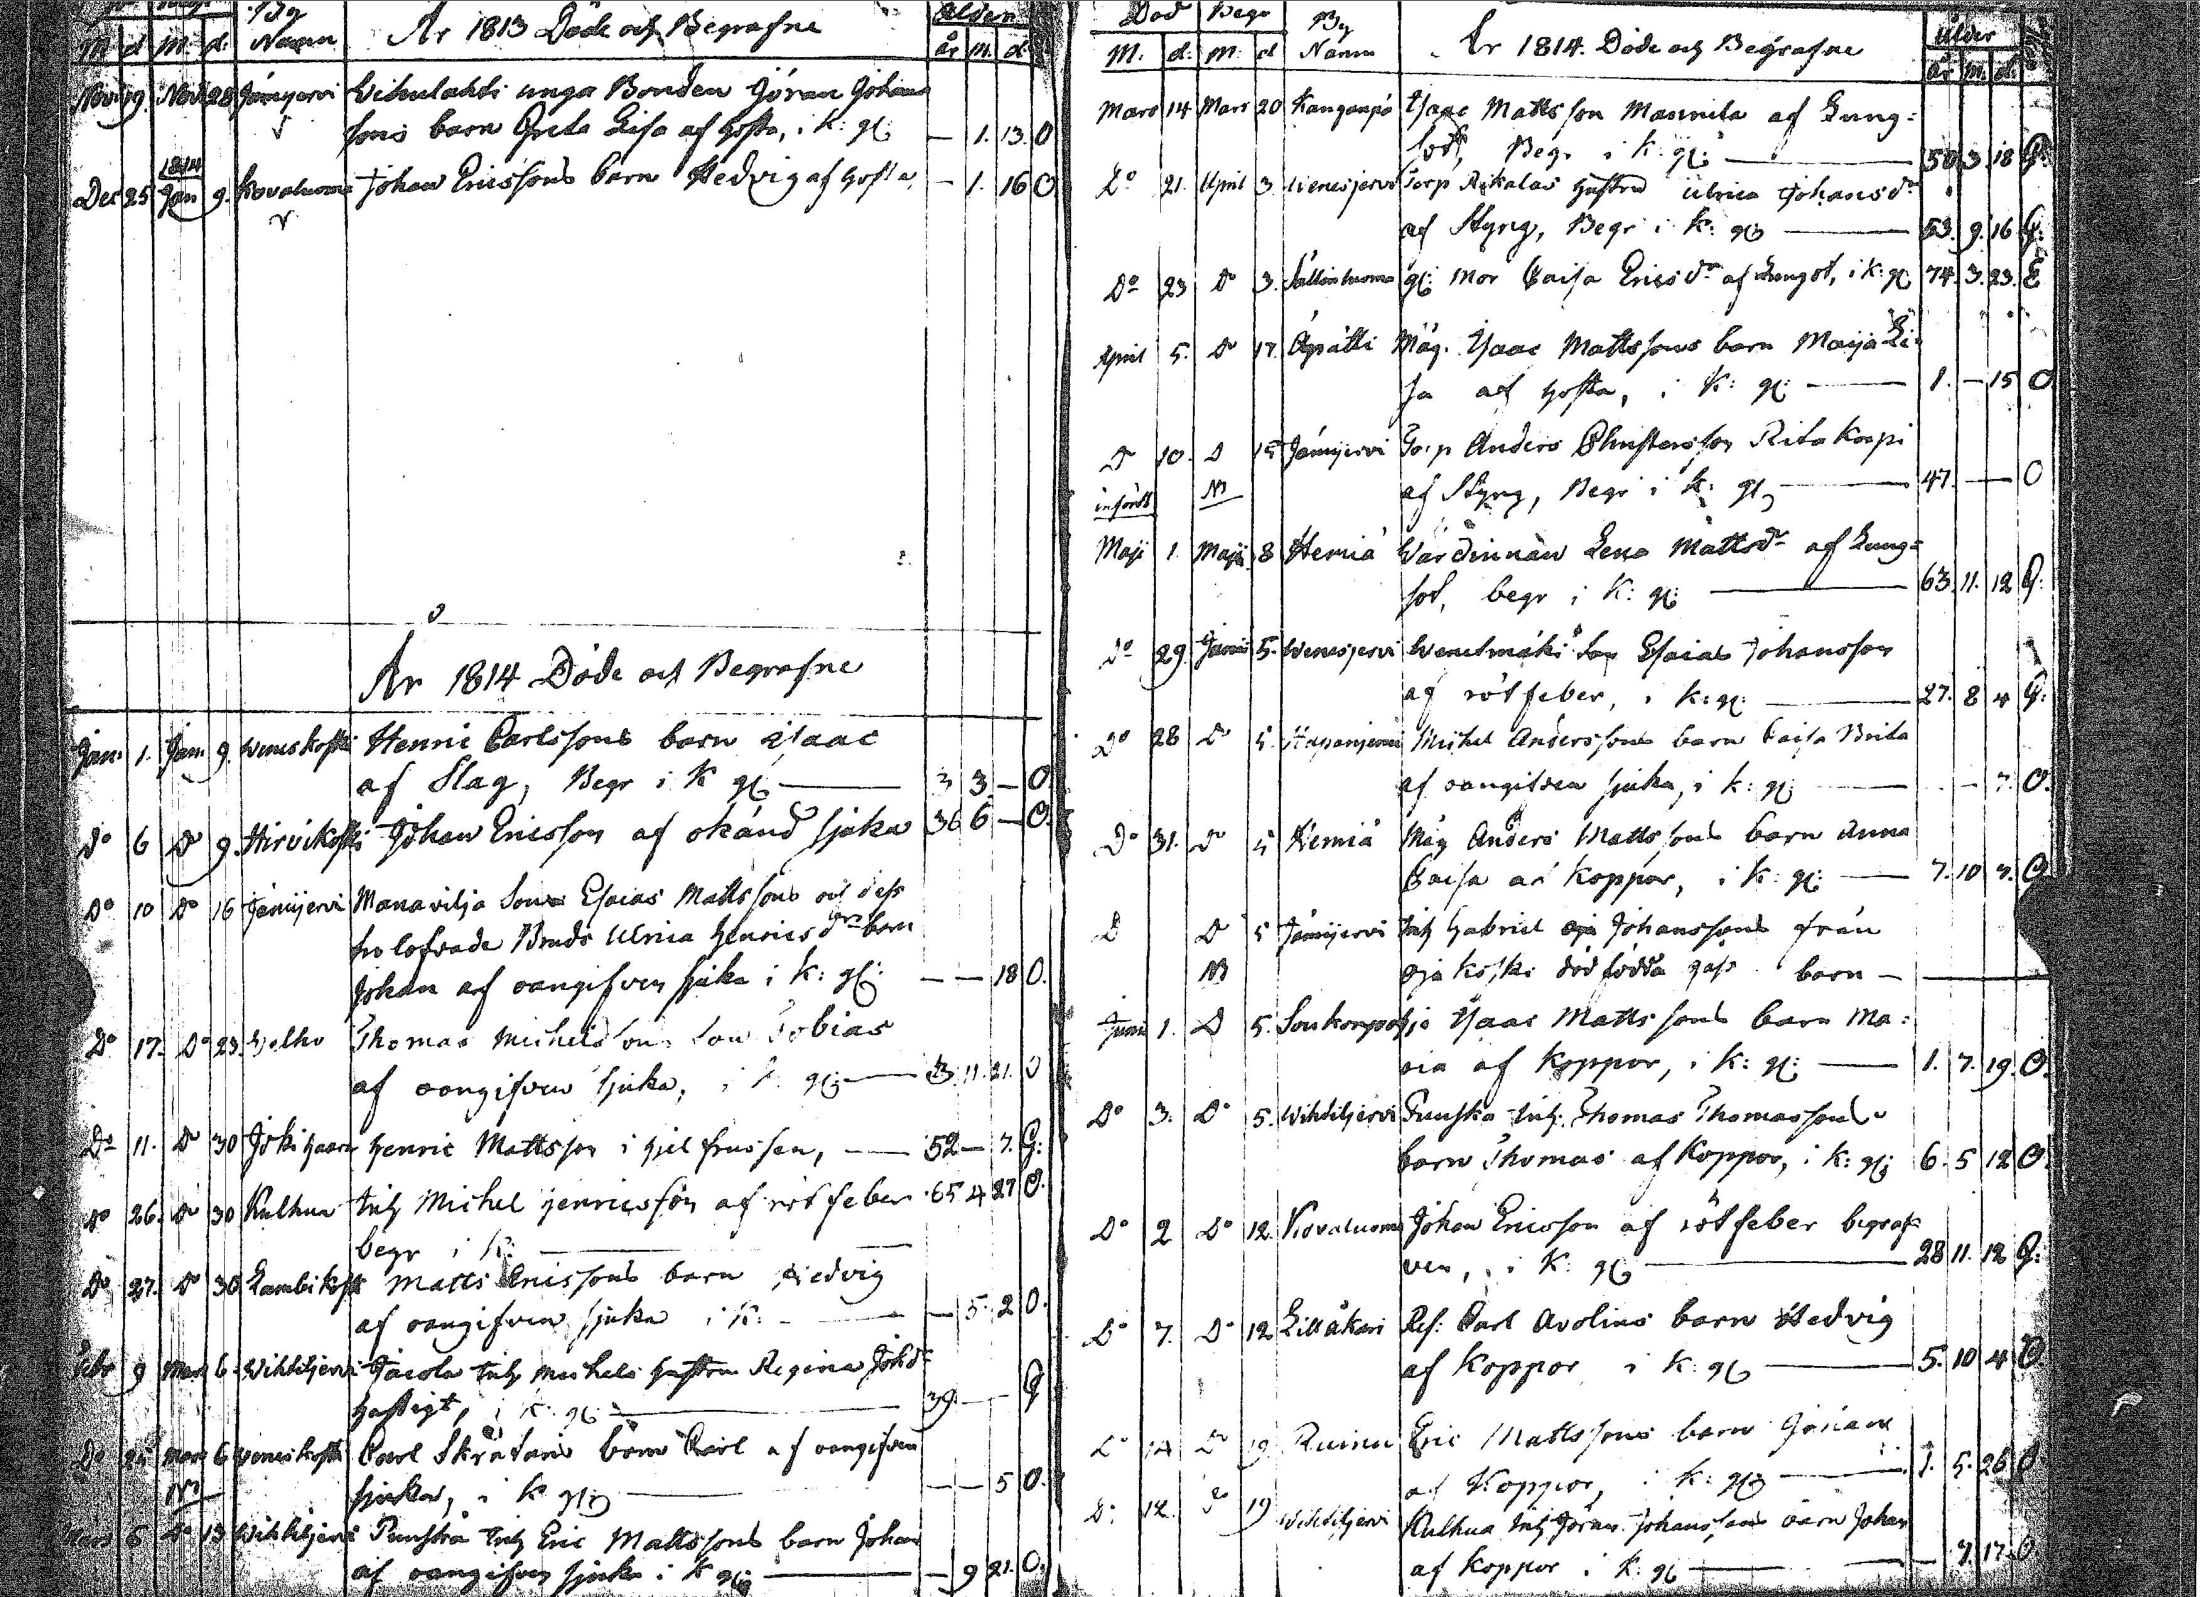 By Ålder
M d M. d. Namn År 1813 Döde och Begrafne år m. d
Nov 19. Nov 28 Jämijervi Wihulahti unga Bonden Göran Johans
sons barn Greta Lisa af hosta, i K: gl: — 1. 13. O
1814
Dec 25 Jan 9. Kovaluoma Johan Ericssons barn Hedvig af hosta — 1. 16 O
År 1814 Döde och Begrafne
Jan. 1. Jan. 9. Weneskoski Henric Carlssons barn Isaac
af Slag, Begr i K gl: — 3 3. — O.
Do 6 Do 9. Hirvikoski Johan Ericsson af okänd sjuka 36 6 — O.
Do 10 Do 16 Jämijervi Manavilja Sons Esaias Mattssons och dess
trolofvade Bruds Ulrica Henricsdrs barn
Johan af oangifven sjuka i K: gl: — — 18 O.
Do 17. Do 23. Thomas Michelssons Son Tobias
af oangifven sjuka, i K. gl: — 11. 21. O
Do 11. Do 30 Henric Mattsson ihjel frusen, — 52 — 7. G:
Do 26. Do 30 Kulhua Inh Michel Henricsson af rötfeber 65 4 27 O.
begr i K: —
Do 27. Do 30 Lambikoski Matts Ericssons barn Hedvig
af oangifven sjuka i K: — — 5. 2 O.
Febr 9 Mars 6. Wihtiljervi Jacola Inh Michels hustru Regina Johdr
hastigt, i K: gl: — 39. — — G
Do 25 Mars 6 Weneskoski Carl Skrätars barn Carl af oangifven
NB sjuka, i K gl: — — — 5 O.
Mars 6 Do 13 Wihtiljervi Punska Inh Eric Mattssons barn Johan
af oangifven sjuka i K gl: — — 9 21. O.
Död Begr By Ålder
M. d. M. d Namn År 1814. Döde och Begrafne år m. d.
Mars 14 Mars 20 Kanganpä Isaac Mattsson Mannila af Lung=
sot, Begr i K: gl: — 50 3 18 G:
Do 21. April 3 Wenesjervi Torp Rikalas hustru Ulrica Johansdr
af Styng, Begr i K: gl: — 53. 9. 16 G:
Do 23 Do 3. gl: Mor Caisa Ericsdr af Lungsot, i K: gl: 74. 3. 23. E
April 5. Do 17. Mäg. Isaac Mattssons barn Maija Li=
sa af hosta, i K: gl: — 1. — 15 O
Do 10. D 15 Jämijervi Torp Anders Christersson Ritakorpi
infördt NB af Styng, Begr i K: gl: — 47. — O
Maji 1. Maji 8 Hemiä Wärdinnan Lena Mattsdr af Lung=
sot, begr i K: gl: — 63. 11. 12 G.
Do 29. Junii 5. Wenesjervi Wenelmäki Son Esaias Johansson
af rötfeber, i K: gl: — 27. 8 4 G:
Do 28 Do 5. Michel Anderssons barn Caisa Brita
af oangifven sjuka, i K: gl: — - 7. O.
Do 31. Do 5 Hemiä Mäg Anders Mattssons barn Anna
Caisa af Koppor, i K: gl: — 7. 10 7. O
D Do 5 Jämijervi Inh Gabriel Oja Johanssons från
NB Ojakoski dödfödda barn —
Juni 1. D 5. Isaac Mattssons barn Ma=
ria af Koppor, i K: gl: — 1. 7. 19. O.
Do 3. Do 5. Wihtiljervi Punska Inh. Thomas Thomassons
barn Thomas af Koppor, i K: gl: 6. 5 12 O.
Do 2 Do 12. Kovaluoma Johan Ericsson af rötfeber begraf=
ven, i K: gl: — 28 11. 12 G:
Do 7. Do 12 Lillåkari Ref: Carl Avolins barn Hedvig
af Koppor i K: gl: — 5. 10 4 O
Do 14 Do 19. Eric Mattssons barn Göran
af Koppor, i K: gl: — 1. 5. 26 O
Do 12. Do 19 Wihtiljervi Kulhua Inh Göran Johanssons barn Johan
af Koppor i K: gl: — 7. 17. O.